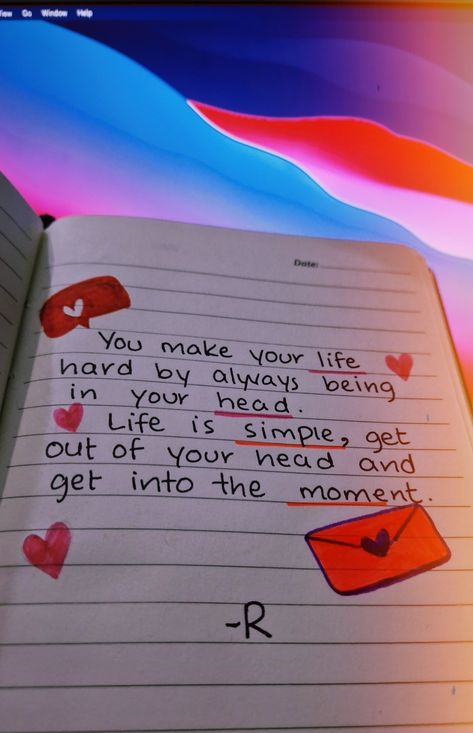 View Go Window Help
Date:
You make your life
hard by always being
in your head.
Life is simple, get
out of your head and
get into the moment.
-R